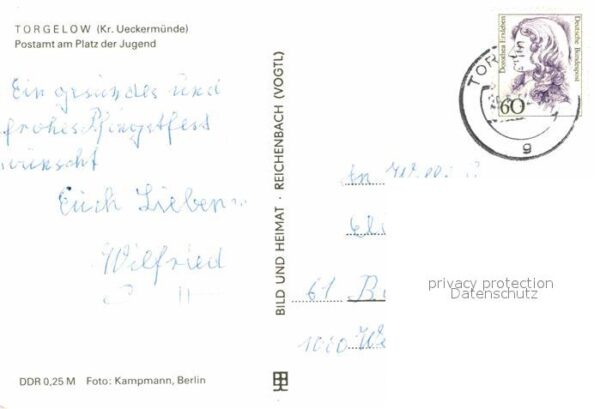 TORGELOW (Kr. Ueckermünde)
Postamt am Platz der Jugend
Ein gesundes und
frohes Pfingstfest
wünscht
Euch Lieben
Wilfried
DDR 0,25 M Foto: Kampmann, Berlin
BILD UND HEIMAT · REICHENBACH (VOGTL)
Dorothea Erxleben
Deutsche Bundespost
60
TOR
g
An
61
1020
privacy protection
Datenschutz